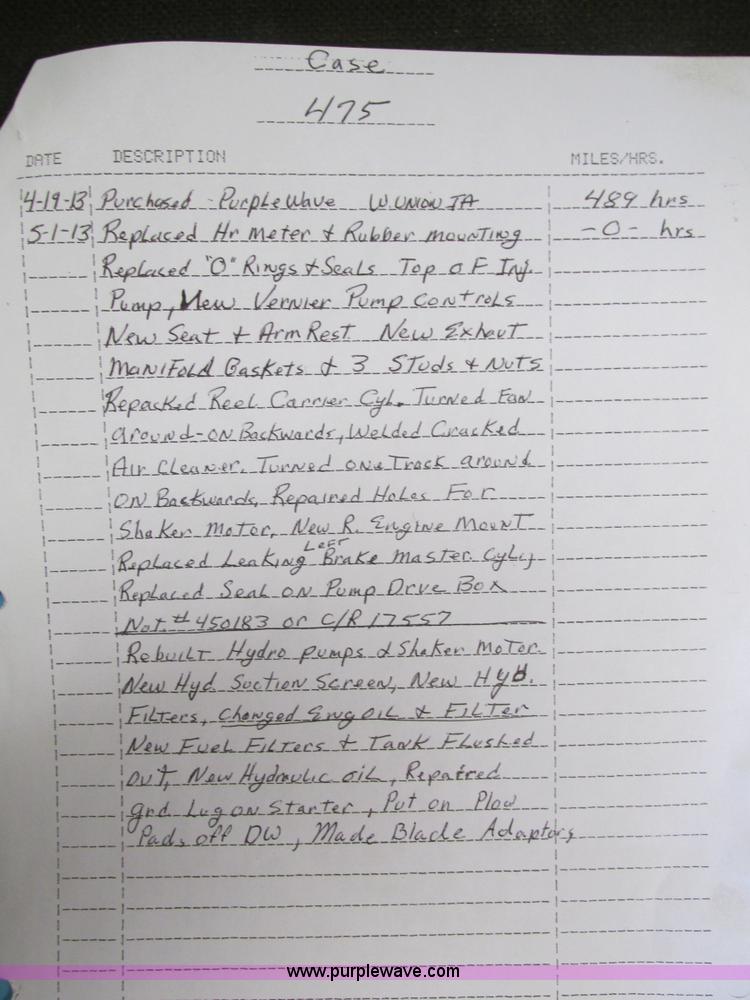 Case
475
DATE DESCRIPTION MILES/HRS.
4-19-13 Purchased - PurpleWave W.UNION IA 489 hrs
5-1-13 Replaced Hr Meter & Rubber mounting -0- hrs
Replaced "O" Rings & Seals Top of Inj.
Pump, New Vernier Pump controls
New Seat & Arm Rest New Exhaut
Manifold Gaskets & 3 Studs & Nuts
Repacked Reel Carrier Cyl. Turned Fan
around-on Backwards, Welded Cracked
Air Cleaner. Turned one Track around
on Backwards, Repaired Holes For
Shaker Motor, New R. Engine Mount
Replaced Leaking Left Brake Master Cyl.
Replaced Seal on Pump Drve Box
Nat. # 450183 or C/R 17557
Rebuilt Hydro pumps & Shaker Motor
New Hyd Suction Screen, New Hyd.
Filters, Changed Eng Oil & Filter
New Fuel Filters & Tank Flushed
out, New Hydraulic oil, Repaired
gnd Lug on Starter, Put on Plow
Pads off DW, Made Blade Adaptors
www.purplewave.com